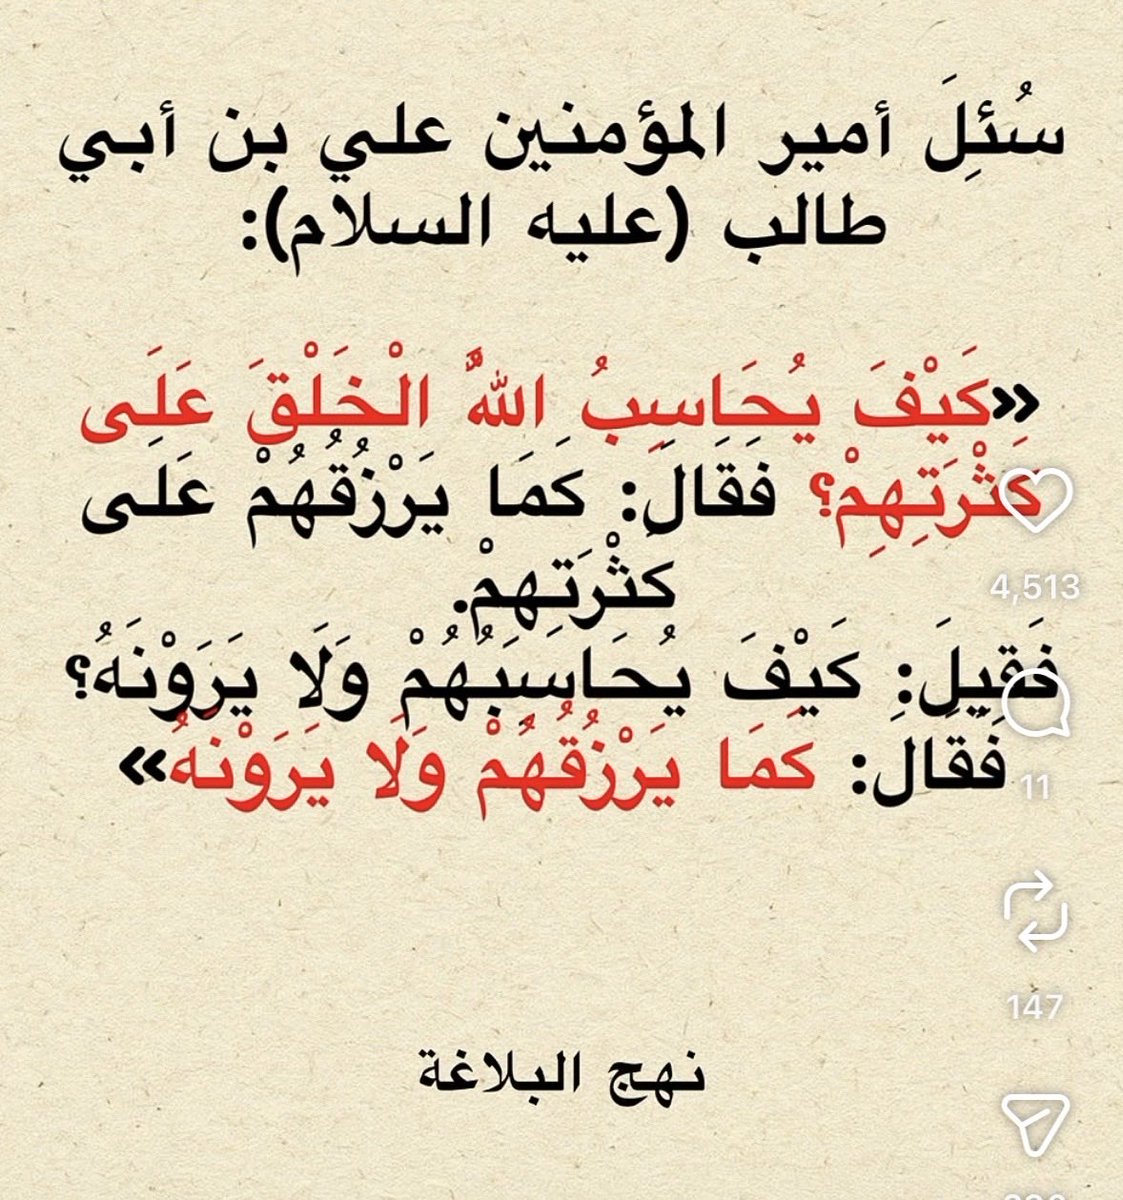 سُئِلَ أمير المؤمنين علي بن أبي
طالب (عليه السلام):
«كَيْفَ يُحَاسِبُ اللهُ الْخَلْقَ عَلَى
كَثْرَتِهِمْ؟ فَقَالَ: كَمَا يَرْزُقُهُمْ عَلَى
كَثْرَتِهِمْ.
فَقِيلَ: كَيْفَ يُحَاسِبُهُمْ وَلَا يَرَوْنَهُ؟
فَقَالَ: كَمَا يَرْزُقُهُمْ وَلَا يَرَوْنَهُ»
نهج البلاغة
4,513
11
147